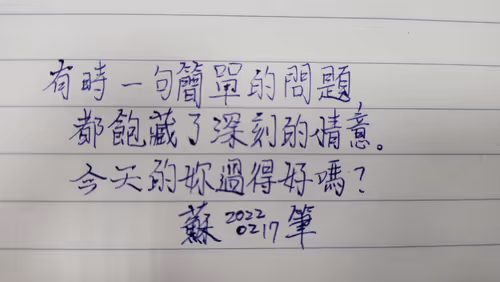 有時一句簡單的問題,
都飽藏了深刻的情意。
今天的妳過得好嗎?
蘇 2022 0217 筆